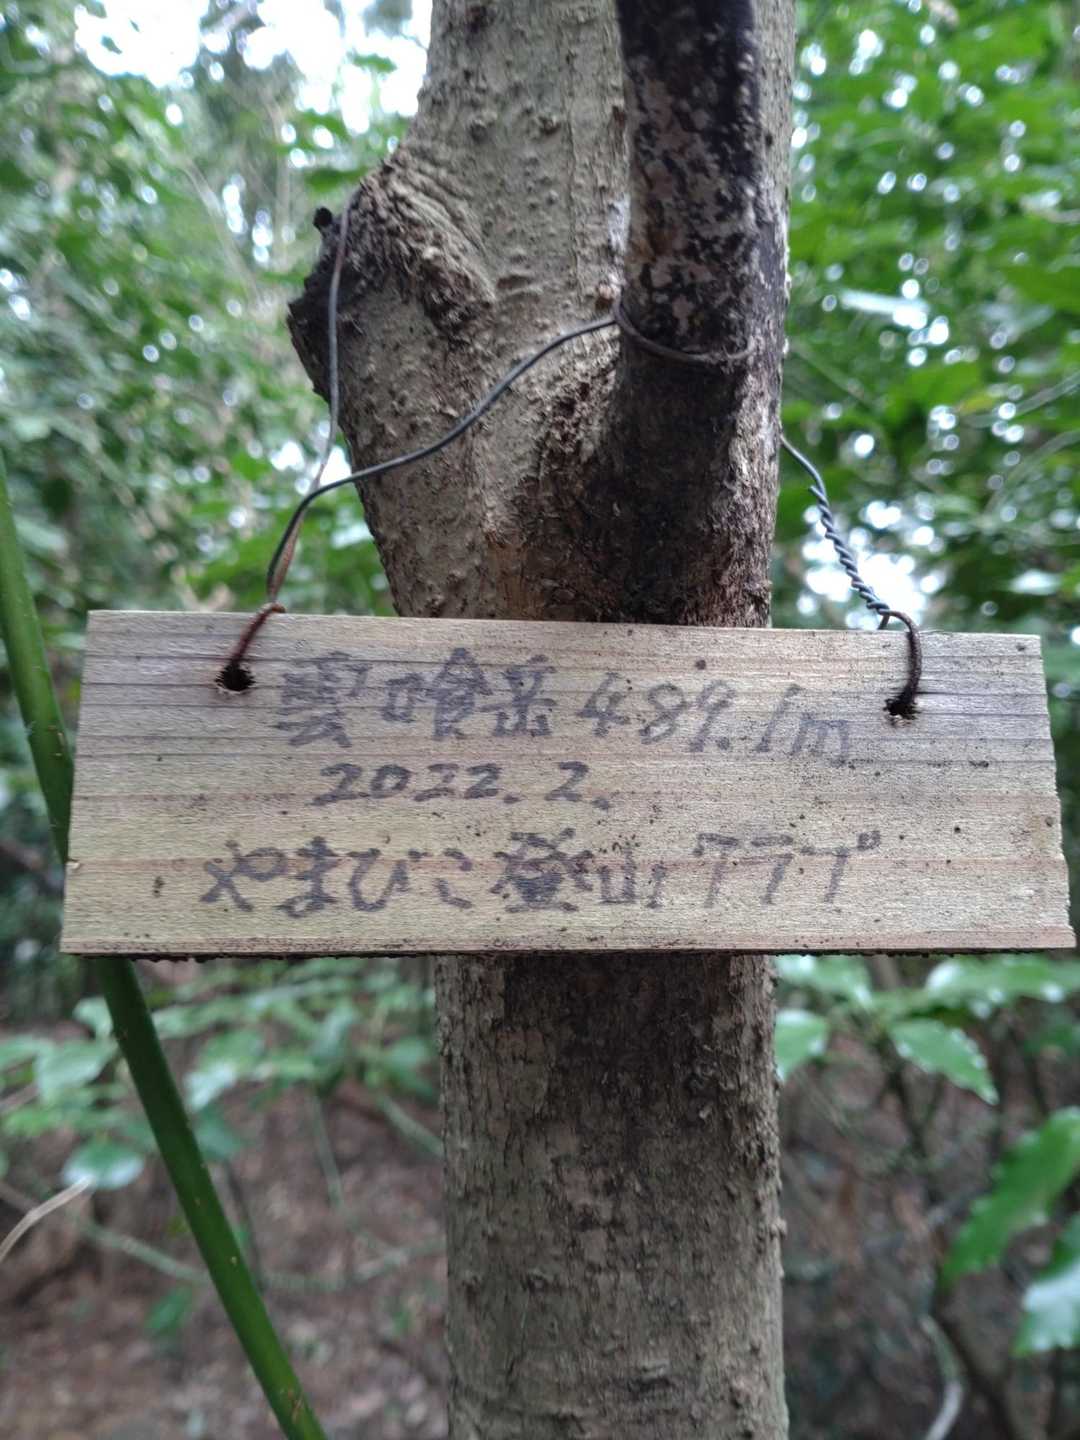 雲喰岳489.1m
2022.2.
やまびこ登山クラブ